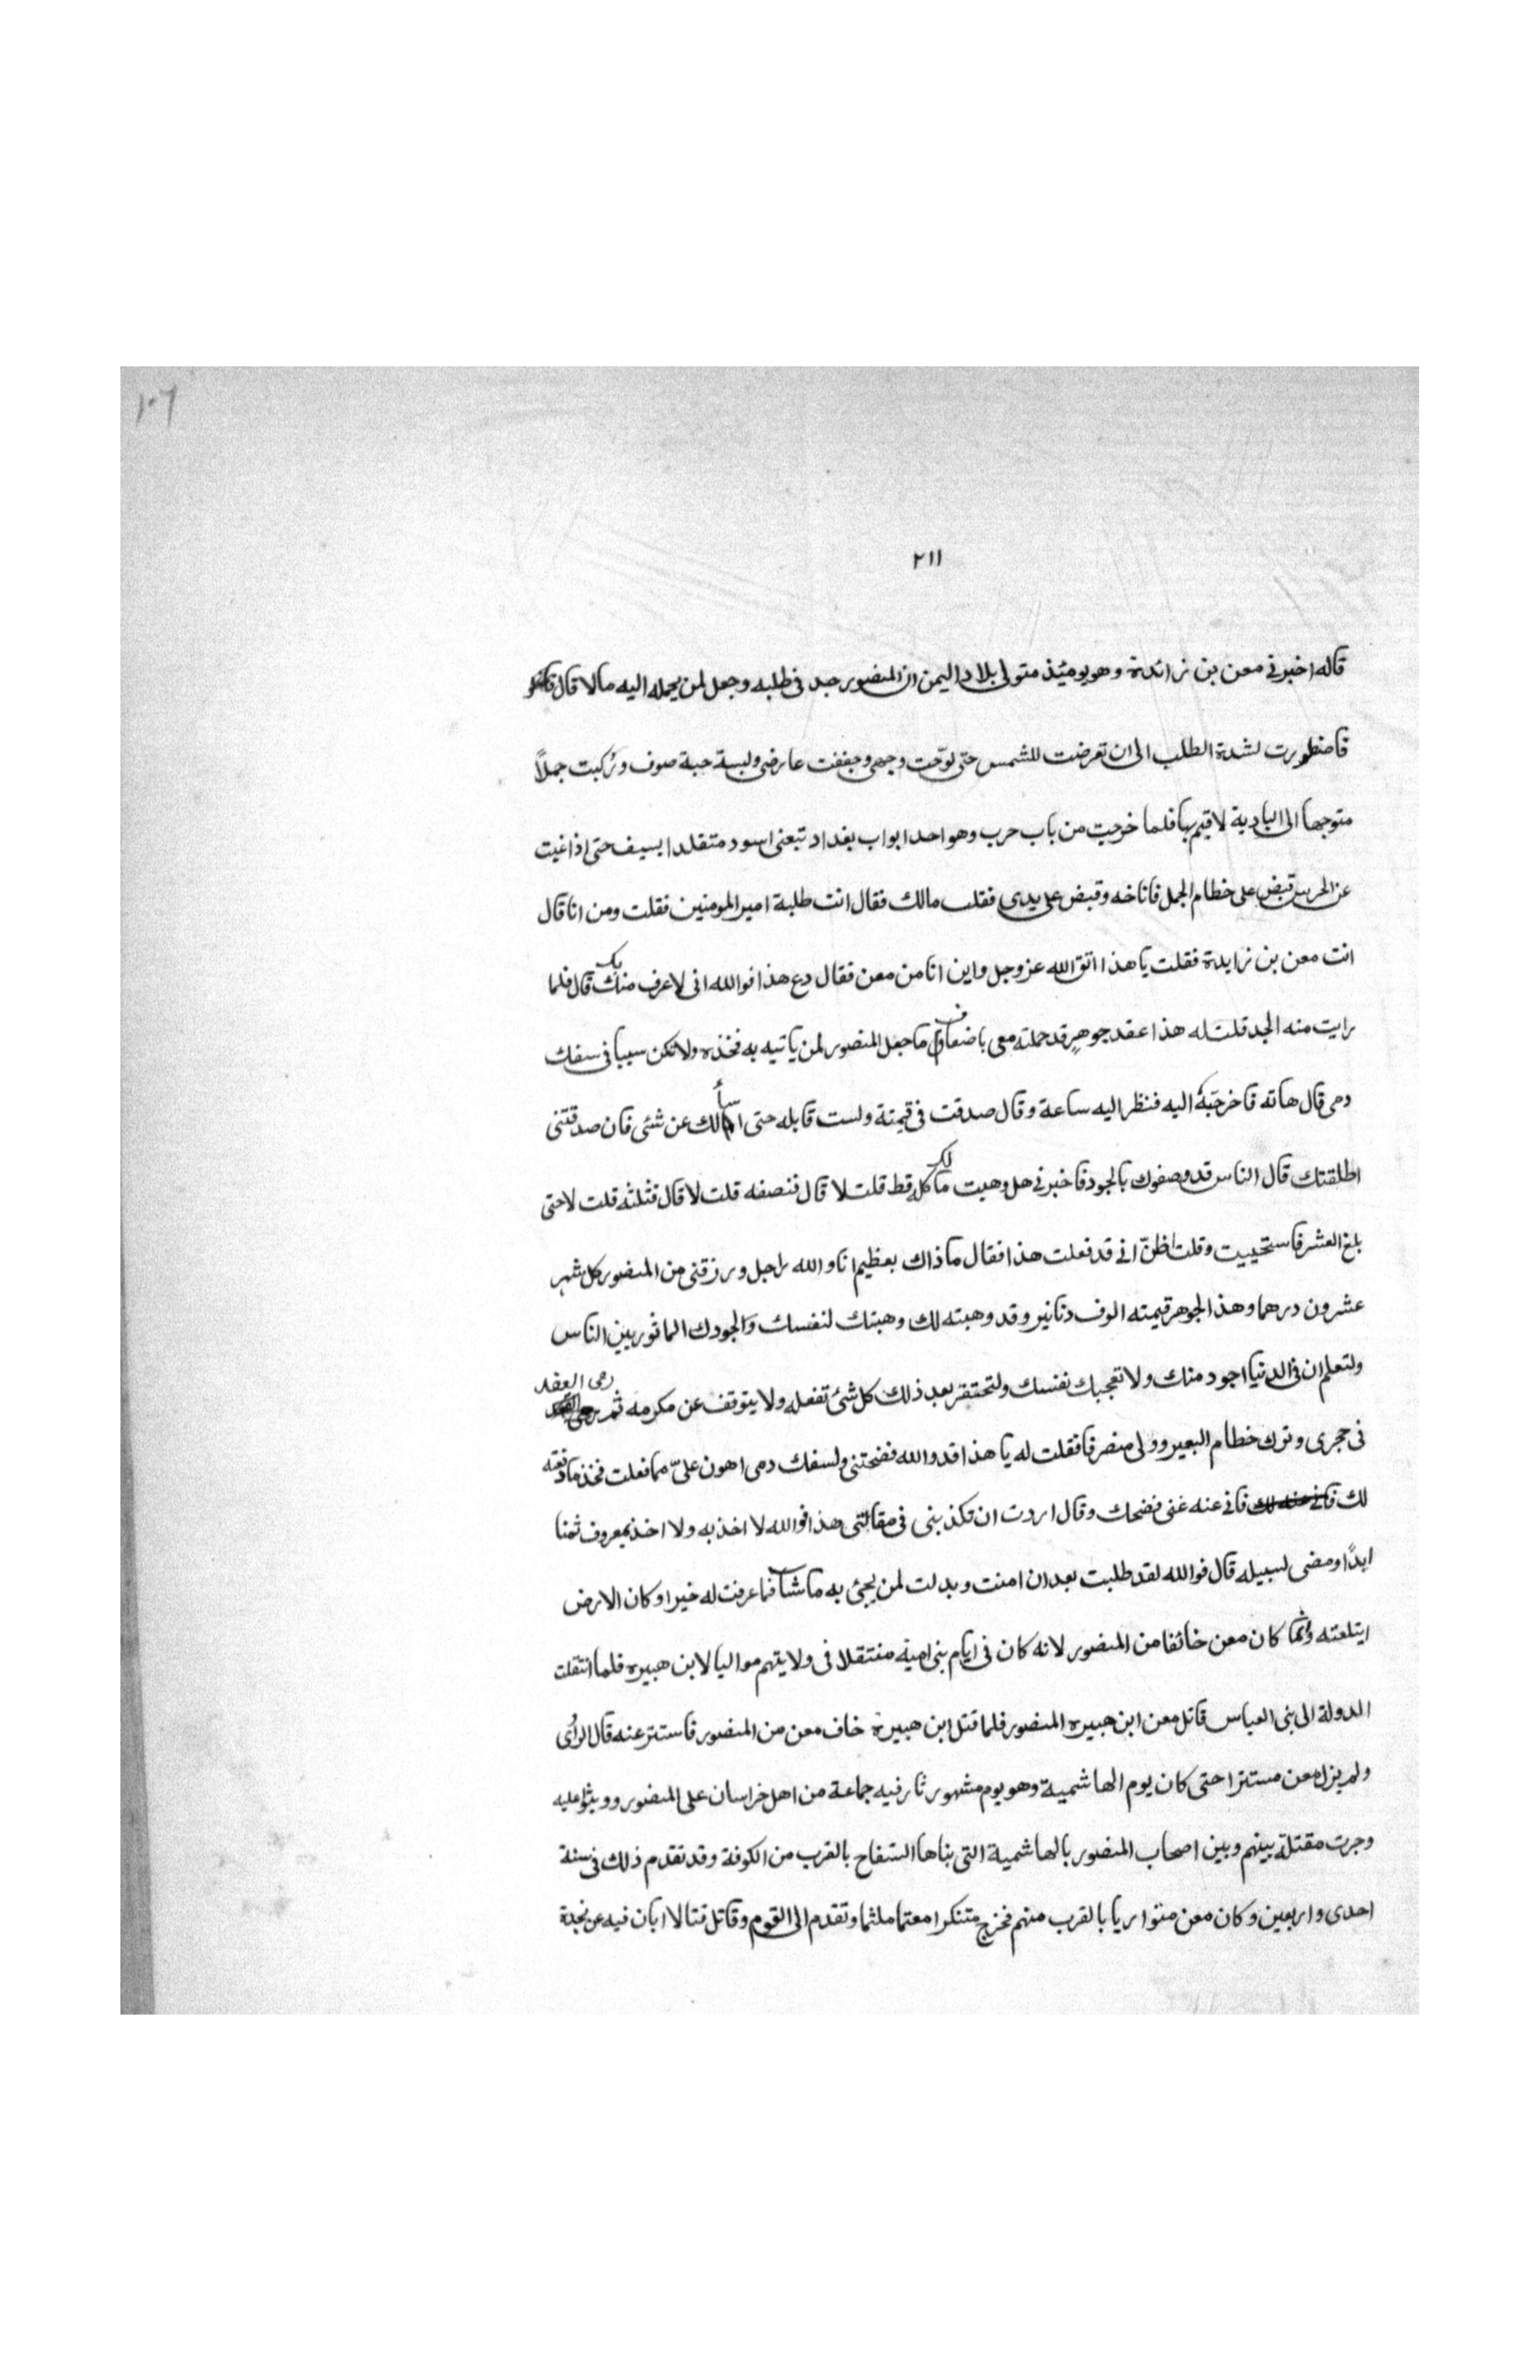 ١٠٦
٢١١
قاله اخبرنى معن بن زائدة وهو يومئذ متولى بلاد اليمن ان المنصور جد فى طلبه وجعل لمن يحمله اليه مالا قال
فاضطررت لشدة الطلب الى ان تعرضت للشمس حتى لوّحت وجهى وجففت عارضى ولبسة جبة صوف وركبت جملاً
متوجها الى البادية لاقيم بها فلما خرجت من باب حرب وهو احد ابواب بغداد تبعنى اسود متقلدا بسيف حتى اذا غبت
عن الحرس قبض على خطام الجمل فاناخه وقبض على يدى فقلت مالك فقال انت طلبة امير المومنين فقلت ومن انا قال
انت معن بن زايدة فقلت يا هذا اتق الله عز وجل واين انا من معن فقال دع هذا فوالله انى لاعرف منك بك قال فلما
رايت منه الجد قلت له هذا عقد جوهرٍ قد حملته معى باضعاف ما جعل المنصور لمن ياتيه به فخذه ولا تكن سببا فى سفك
دمى قال هاته فاخرجته اليه فنظر اليه ساعة وقال صدقت فى قيمتة ولست قابله حتى اسألك عن شئى فان صدقتنى
اطلقتك قال الناس قد وصفوك بالجود فاخبرنى هل وهبت مالك كله قط قلت لا قال فنصفه قلت لا قال فثلثه قلت لا حتى
بلغ العشر فاستحييت وقلت اظنّ انى قد فعلت هذا فقال ما ذاك بعظيم انا والله راجل ورزقنى من المنصور كل شهر
عشرون درهما وهذا الجوهر قيمته الوف دنانير وقد وهبته لك وهبتك لنفسك والجودك الماثور بين الناس
ولتعلم ان فى الدنيا اجود منك ولا تعجبك نفسك ولتحتقر بعد ذلك كل شئ تفعله ولا يتوقف عن مكرمه ثم رمى العقد
فى حجرى وترك خطام البعير وولى منصرفا فقلت له يا هذا قد والله فضحتنى ولسفك دمى اهون علىّ مما فعلت فخذ ما دفعته
لك فانى عنه غنى فضحك وقال اردت ان تكذبنى فى مقالتى هذا فوالله لا اخذ به ولا اخذ بمعروف ثمنا
ابدًا ومضى لسبيله قال فوالله لقد طلبت بعد ان امنت وبدلت لمن يجئ به ما شآ فما عرفت له خيرا وكان الارض
ابتلعته وانما كان معن خائفا من المنصور لانه كان فى ايام بنى امية منتقلا فى ولايتهم مواليا لابن هبيره فلما انتقلت
الدولة الى بنى العباس قاتل معن ابن هبيره المنصور فلما قتل ابن هبيرة خاف معن من المنصور فاستتر عنه قال الراى
ولم يزل معن مستترا حتى كان يوم الهاشمية وهو يوم مشهور ثار فيه جماعة من اهل خراسان على المنصور ووثبوا عليه
وجرت مقتلة بينهم وبين اصحاب المنصور بالهاشمية التى بناها السفاح بالقرب من الكوفة وقد تقدم ذلك فى سنة
احدى واربعين وكان معن متواريا بالقرب منهم فخرج متنكرا معتما ملثما وتقدم الى القوم وقاتل قتالا ابان فيه عن نجدة